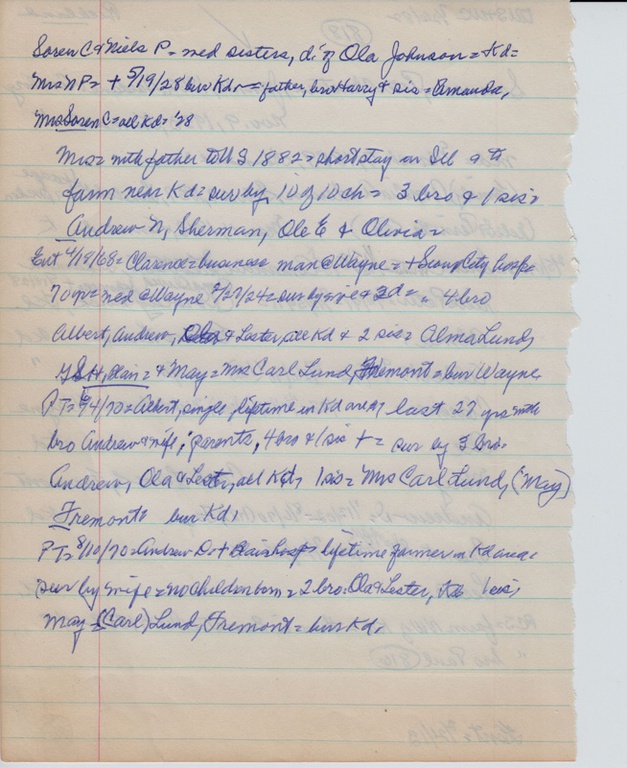 Soren C & Niels P = wed sisters, d. of Ola Johnson = Kd =
Mrs N P = + 5/19/28 bur Kd = father, bro Harry & sis = Amanda,
Mrs Soren C = all Kd = '28
Mrs = with father to US 1882 = short stay in Ill & to
farm near Kd = sur by 10 of 10 ch = 3 bro & 1 sis =
Andrew N, Sherman, Ole E & Olivia =
Ent 4/18/68 = Clarence = business man @ Wayne = + Sioux City hosp =
70 yr = wed @ Wayne 2/27/24 = sur by wife & 2d = 4 bro
Albert, Andrew, Ola & Lester, all Kd & 2 sis = Alma Lund,
Blair = & May = Mrs Carl Lund, Fremont = bur Wayne
PT = /4/70 = Albert, single, lifetime in Kd area, last 27 yrs with
bro Andrew & wife, parents, 4 bro & 1 sis + = sur by 3 bro =
Andrew, Ola & Lester, all Kd, 1 sis = Mrs Carl Lund, (May)
Fremont = bur Kd,
PT = 8/10/70 = Andrew D. + Blair hosp = lifetime farmer in Kd area =
sur by wife = no children born = 2 bro: Ola & Lester, Kd 1 sis,
May = (Carl) Lund, Fremont = bur Kd,